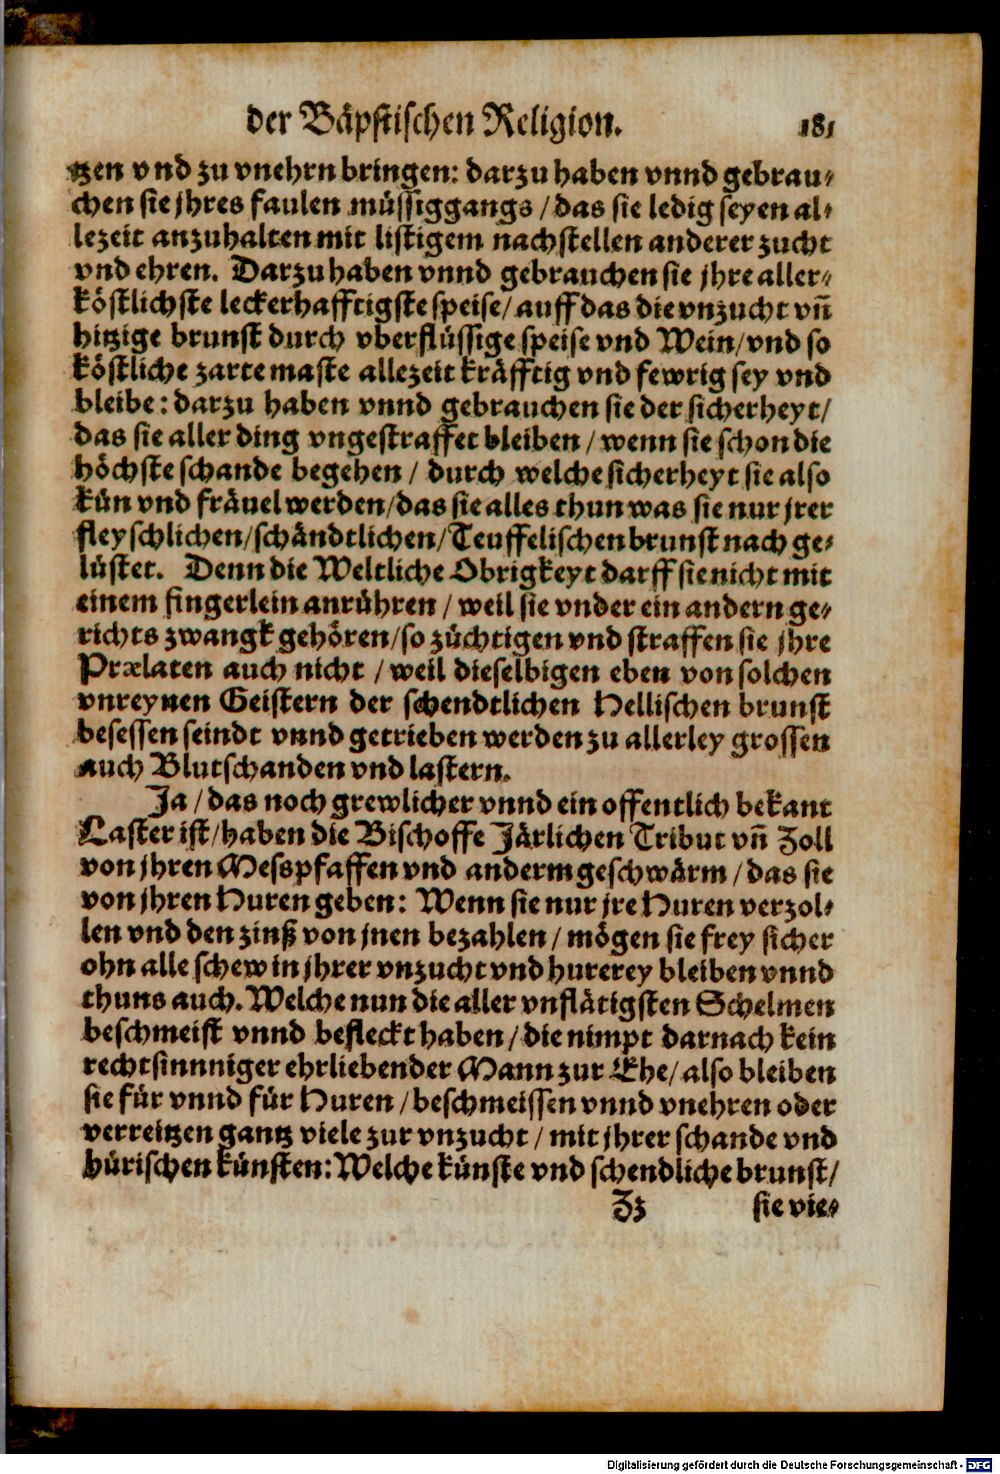 der Bäpstischen Religion. 181
tzen vnd zu vnehrn bringen: darzu haben vnnd gebrau-
chen sie jhres faulen müssiggangs / das sie ledig seyen al-
lezeit anzuhalten mit listigem nachstellen anderer zucht
vnd ehren. Darzu haben vnnd gebrauchen sie jhre aller-
köstlichste leckerhafftigste speise / auff das die vnzucht vñ
hitzige brunst durch vberflüssige speise vnd Wein / vnd so
köstliche zarte maste allezeit kräfftig vnd fewrig sey vnd
bleibe: darzu haben vnnd gebrauchen sie der sicherheyt /
das sie aller ding vngestraffet bleiben / wenn sie schon die
höchste schande begehen / durch welche sicherheyt sie also
kün vnd fräuel werden / das sie alles thun was sie nur jrer
fleyschlichen / schändtlichen / Teuffelischen brunst nach ge-
lüstet. Denn die Weltliche Obrigkeyt darff sie nicht mit
einem fingerlein anrühren / weil sie vnder ein andern ge-
richts zwangk gehören / so züchtigen vnd straffen sie jhre
Prælaten auch nicht / weil dieselbigen eben von solchen
vnreynen Geistern der schendtlichen Hellischen brunst
besessen seindt vnnd getrieben werden zu allerley grossen
auch Blutschanden vnd lastern.
Ja / das noch grewlicher vnnd ein offentlich bekant
Laster ist / haben die Bischoffe Järlichen Tribut vñ Zoll
von jhren Messpfaffen vnd anderm geschwärm / das sie
von jhren Huren geben: Wenn sie nur jre Huren verzol-
len vnd den zinß von jnen bezahlen / mögen sie frey sicher
ohn alle schew in jhrer vnzucht vnd hurerey bleiben vnnd
thuns auch. Welche nun die aller vnflätigsten Schelmen
beschmeist vnnd befleckt haben / die nimpt darnach kein
rechtsinnniger ehrliebender Mann zur Ehe / also bleiben
sie für vnnd für Huren / beschmeissen vnnd vnehren oder
verreitzen gantz viele zur vnzucht / mit jhrer schande vnd
hürischen künsten: Welche künste vnd schendliche brunst /
Zz sie vie-
Digitalisierung gefördert durch die Deutsche Forschungsgemeinschaft - DFG